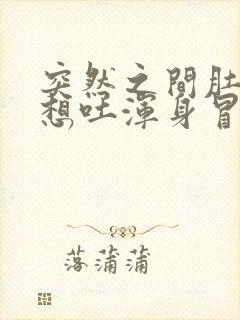 突然之間肚
想吐渾身冒
落蒲蒲